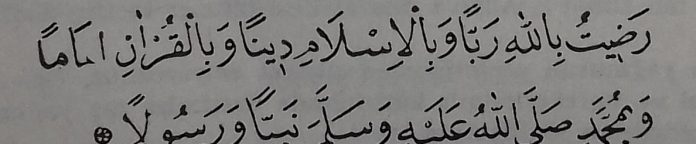 رَضِيتُ بِاللّٰهِ رَبًّا وَبِالْاِسْلَامِ دِينًا وَبِالْقُرْاٰنِ اِمَامًا
وَبِمُحَمَّدٍ صَلَّى اللّٰهُ عَلَيْهِ وَسَلَّمَ نَبِيًّا وَرَسُولًا